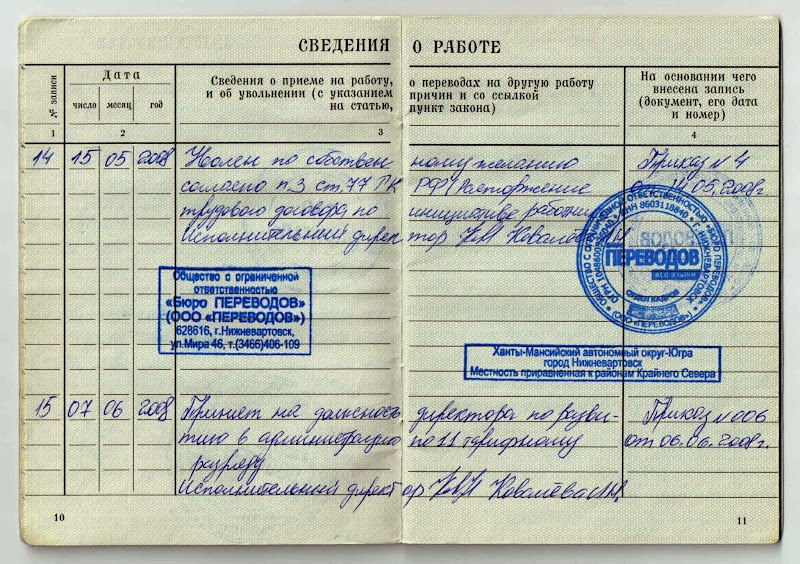 СВЕДЕНИЯ О РАБОТЕ
№ записи
Дата
число месяц год
Сведения о приеме на работу, о переводах на другую работу
и об увольнении (с указанием причин и со ссылкой
на статью, пункт закона)
На основании чего
внесена запись
(документ, его дата
и номер)
1 2 3 4
14 15 05 2008 Уволен по собственному желанию Приказ № 4
согласно п.3 ст.77 ТК РФ (Расторжение от 14.05.2008г.
трудового договора по инициативе
Исполнительный директор Ковалёва
Общество с ограниченной
ответственностью
«Бюро ПЕРЕВОДОВ»
(ООО «ПЕРЕВОДОВ»)
628616, г.Нижневартовск,
ул.Мира 46, т.(3466)406-109
ПЕРЕВОДОВ
все языки
ОТДЕЛ КАДРОВ
Ханты-Мансийский автономный округ-Югра
город Нижневартовск
Местность приравненная к районам Крайнего Севера
15 07 06 2008 Принят на должность директора по разви- Приказ № 006
тию в администрацию по 11 тарифному от 06.06.2008г.
разряду
Исполнительный директор Ковалёва
10
11